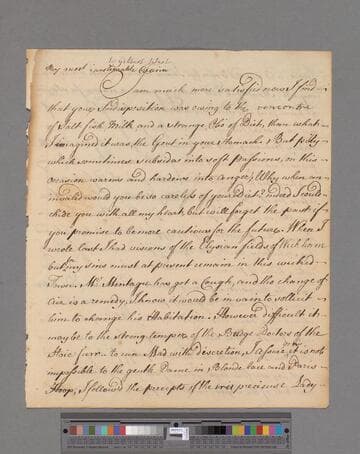 My most inestimable Cousin
I am much more satisfied now I find
that your Indisposition was owing to the rencontre
of Salt fish Milk and a strange Olio of Diet, than when
I imagined it was the Gout in your Stomach; But pitty
which sometimes subsides into soft Passions, on this
occasion warms and hardens into anger; Why when an
invalid would you be so careless of your Diet? indeed I could
chide you with all my heart, but will forget the past if
you promise to be more cautious for the future. When I
wrote last I had visions of the Elysian fields of
but my sins must at present remain in this wicked
Town. Mr. Montagu has got a Cough, and tho change of
air is a remedy, I know it would be in vain to sollicit
him to change his Habitation. However difficult it
may be to the strong temper of the Bedge Doctors of the
Stoic furr to run Mad with discretion, I assure you it is not
impossible to the gentle Dame in Blonde lace and Paris
Hoop, I followed the precepts of the tres precieuse Lady